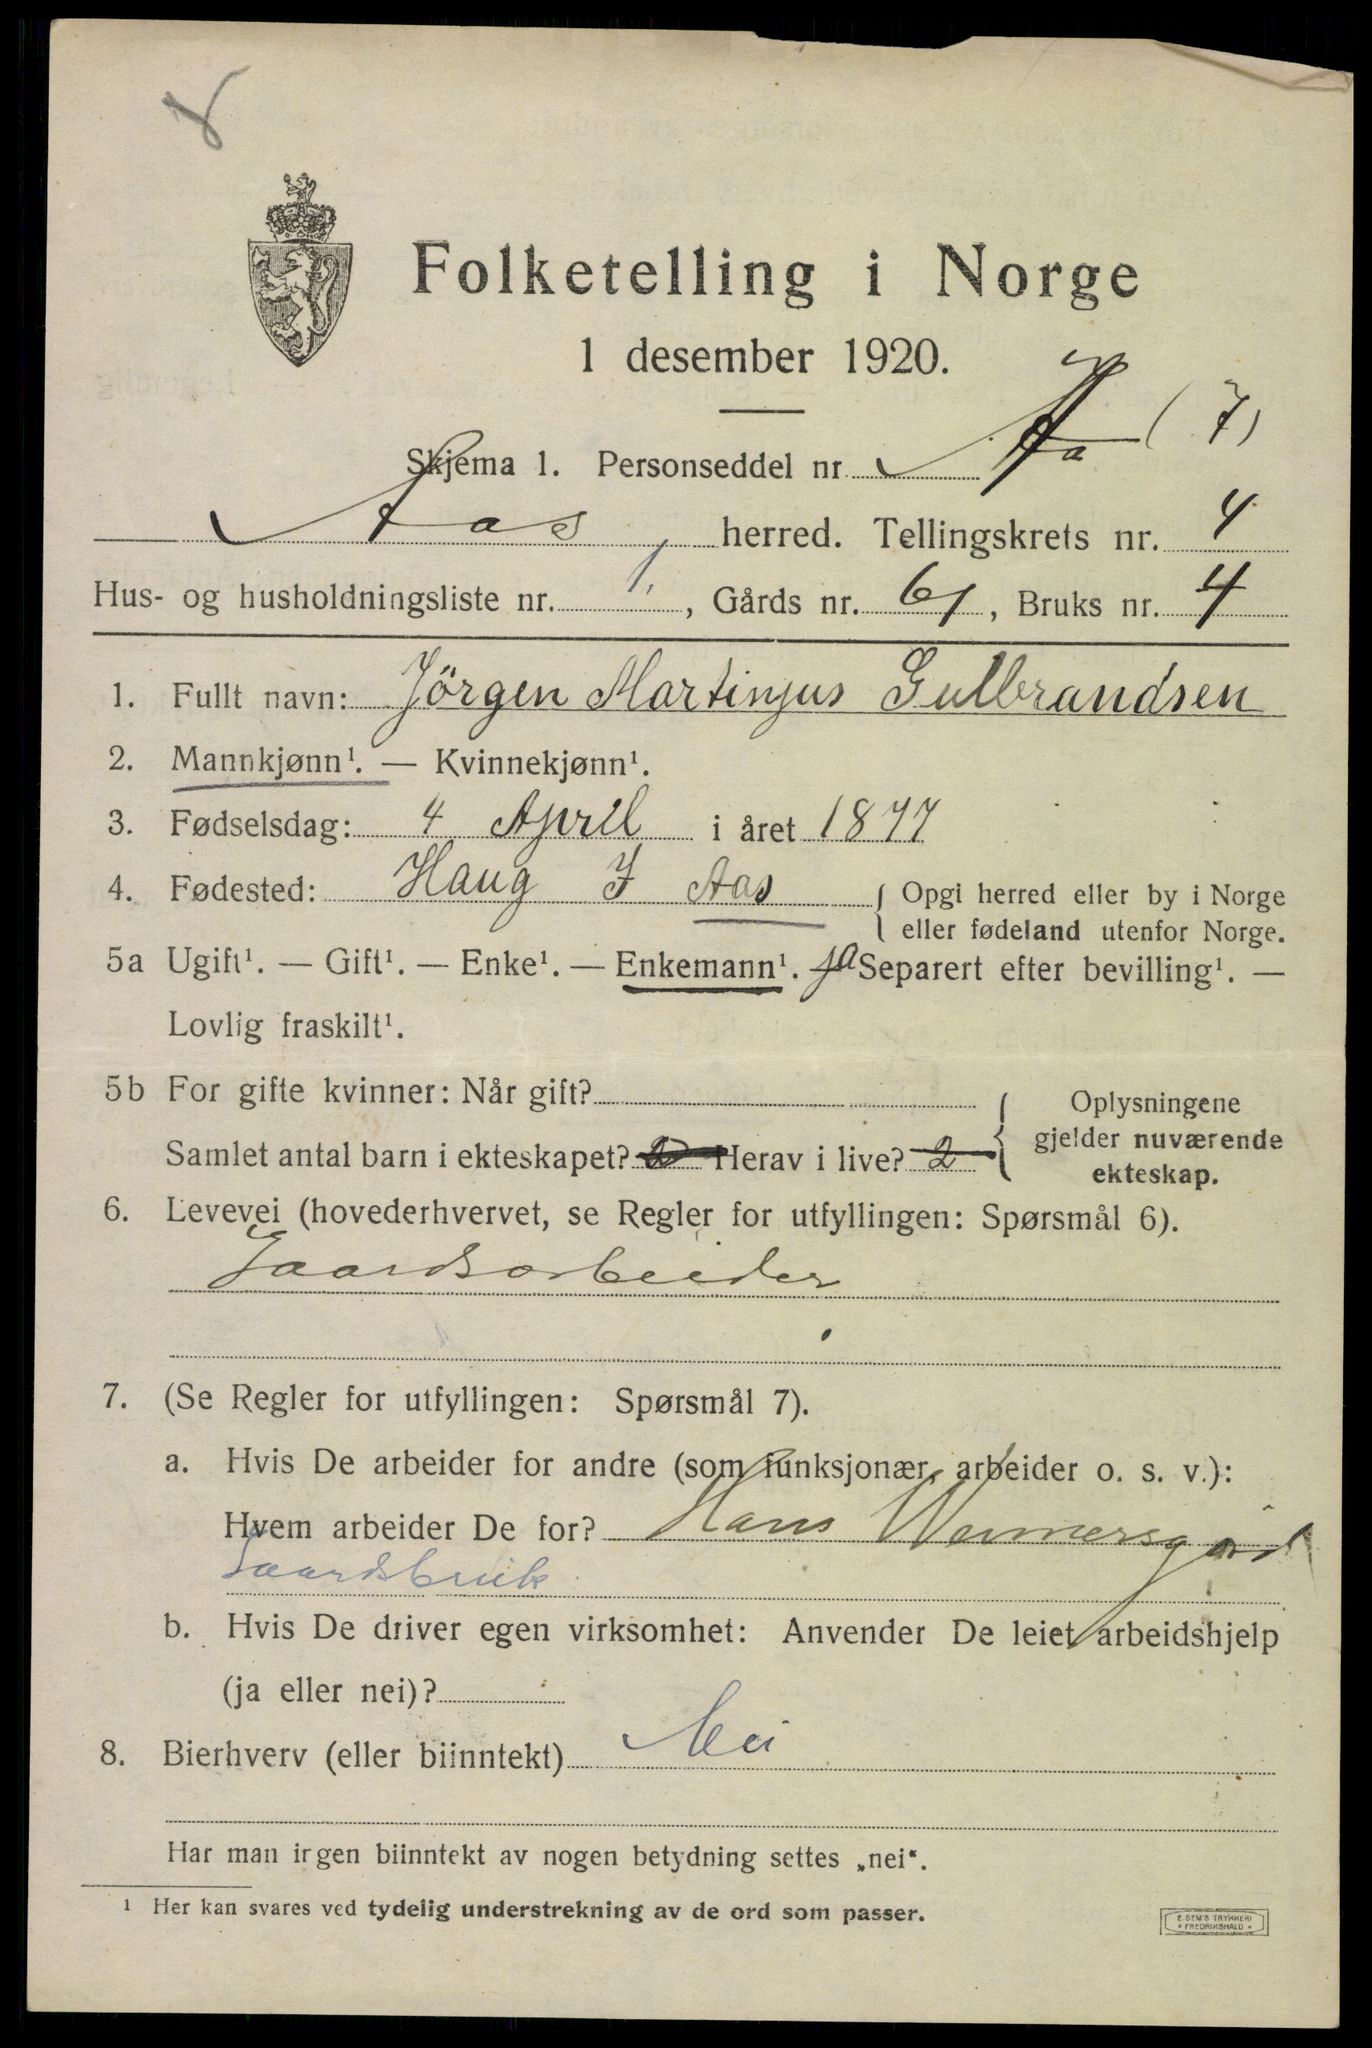 Folketelling i Norge
1 desember 1920.
Skjema 1. Personseddel nr. (7)
Aas herred. Tellingskrets nr. 4
Hus- og husholdningsliste nr. 1, Gårds nr. 61, Bruks nr. 4
1. Fullt navn: Jörgen Martinjus Gulbrandsen
2. Mannkjønn¹. — Kvinnekjønn¹.
3. Fødselsdag: 4 April i året 1877
4. Fødested: Haug I Aas { Opgi herred eller by i Norge
eller fødeland utenfor Norge.
5a Ugift¹. — Gift¹. — Enke¹. — Enkemann¹. ja Separert efter bevilling¹. —
Lovlig fraskilt¹.
5b For gifte kvinner: Når gift?
Samlet antal barn i ekteskapet? 2 Herav i live? 2
{ Oplysningene
gjelder nuværende
ekteskap.
6. Levevei (hovederhvervet, se Regler for utfyllingen: Spørsmål 6).
Gaardsarbeider
7. (Se Regler for utfyllingen: Spørsmål 7).
a. Hvis De arbeider for andre (som funksjonær, arbeider o. s. v.):
Hvem arbeider De for? Hans
Gaardsbruk
b. Hvis De driver egen virksomhet: Anvender De leiet arbeidshjelp
(ja eller nei)?
8. Bierhverv (eller biinntekt) Nei
Har man ingen biinntekt av nogen betydning settes „nei“.
¹ Her kan svares ved tydelig understrekning av de ord som passer.
E. SEM'S TRYKKERI
* FREDRIKSHALD *